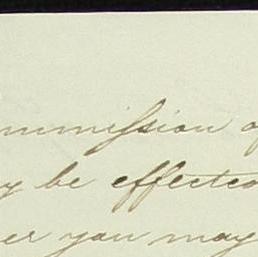 mmission of
y be effected
er you may